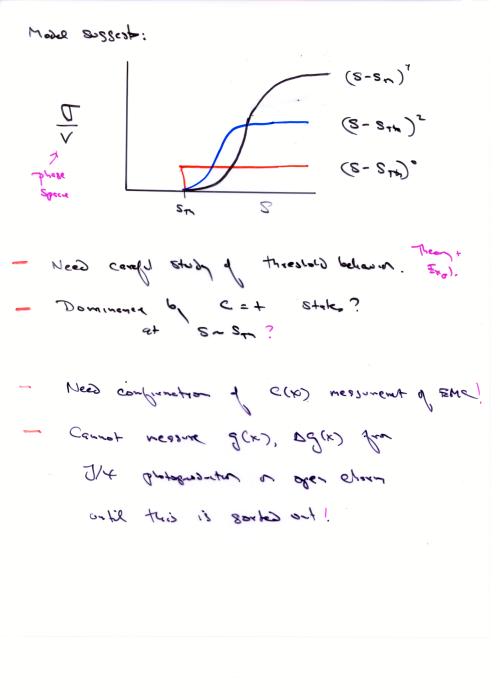 Model suggests:
(S-S_Th)^7
σ/V
(S-S_Th)^2
(S-S_Th)^0
phase
space
S_Th
S
Theory +
Exp.
— Need careful study of threshold behavior.
— Dominance by C=+ states?
at S~S_Th?
— Need confirmation of C(x) measurement of EMC!
— Cannot measure g(x), Δg(x) from
J/ψ photoproduction or open charm
until this is sorted out!